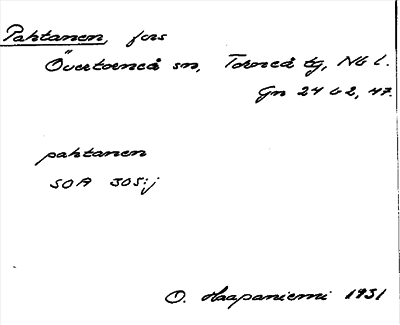 Pahtanen, fors
Övertorneå sn, Torneå tg, Nb l.
Gn 24 G 2, 47.
pahtanen
SOA 305:j
O. Haapaniemi 1931